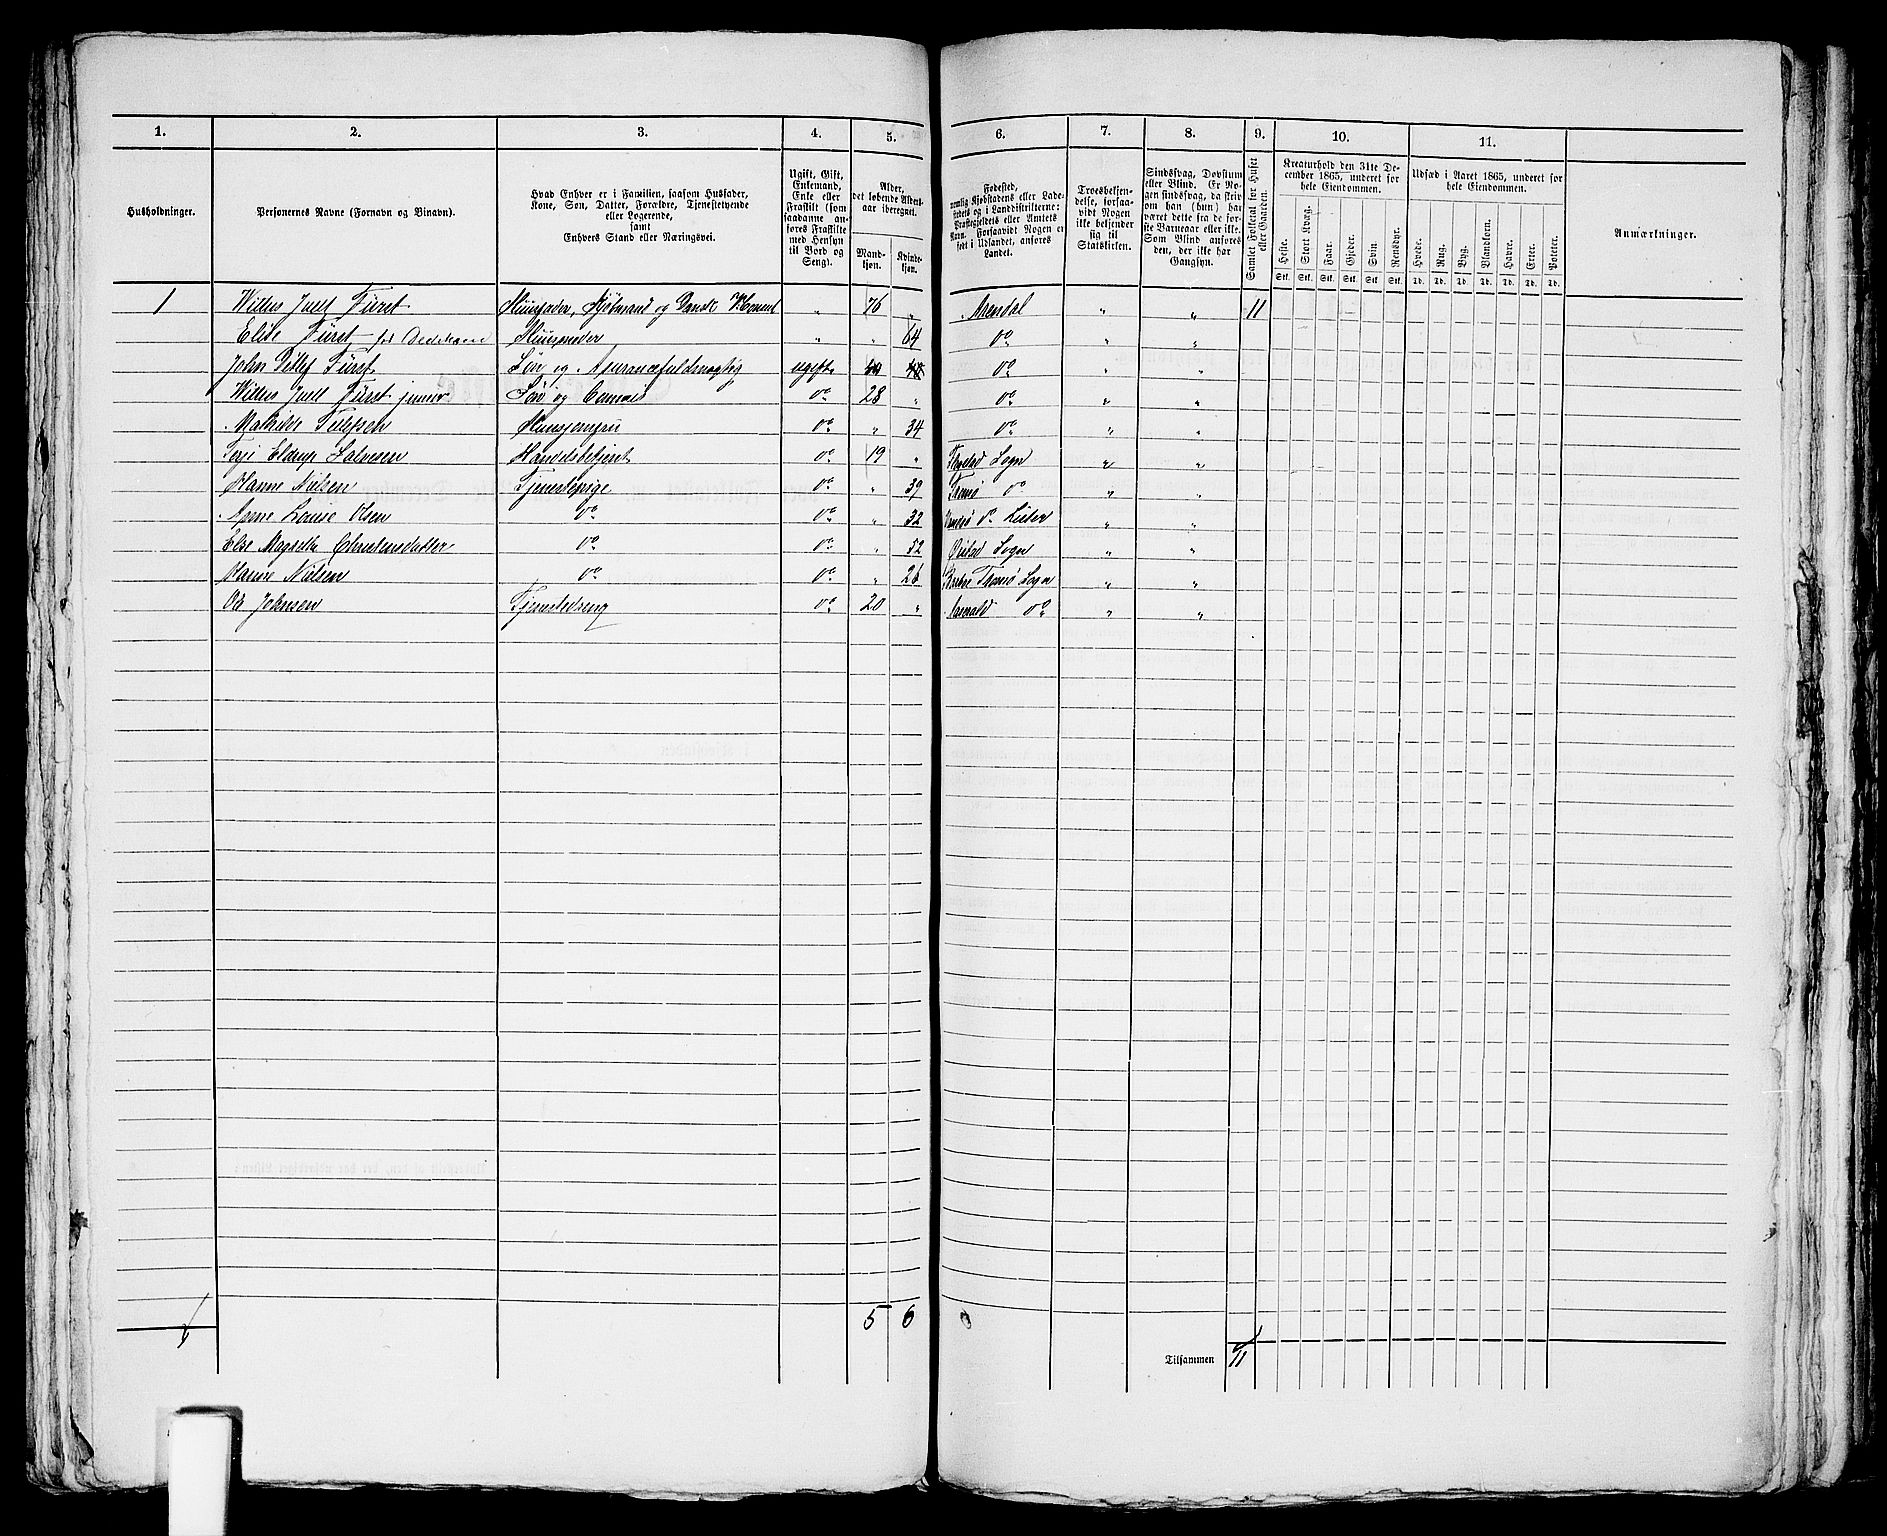 1. 2. 3. 4. 5. 6. 7. 8. 9. 10. 11.
Husholdninger.
Personernes Navne (Fornavn og Binavn).
Hvad Enhver er i Familien, saasom Husfader,
Kone, Søn, Datter, Forældre, Tjenestetyende
eller Logerende,
samt
Enhvers Stand eller Næringsvei.
Ugift, Gift,
Enkemand,
Enke eller
Fraskilt (som
saadanne an-
føres Fraskilte
med Hensyn
til Bord og
Seng).
Alder,
det løbende Alders-
aar iberegnet.
Mand-
kjøn.
Kvinde-
kjøn.
Fødested,
nemlig Kjøbstadens eller Lade-
stedets og i Landdistrikterne:
Præstegjeldets eller Amtets
Navn. Forsaavidt Nogen er
født i Udlandet, anføres
Landet.
Troesbekjen-
delse, forsaa-
vidt Nogen
ikke bekjender
sig til
Statskirken.
Sindssvag, Døvstum
eller Blind. Er No-
gen sindssvag, da skriv
om han (hun) har
været dette fra de før-
ste Barneaar eller ikke.
Som Blind anføres
den, der ikke har
Gangsyn.
Samlet Folketal for Huset
eller Gaarden.
Kreaturhold den 31te De-
cember 1865, underet for
hele Eiendommen.
Heste. Stort Kvæg. Faar. Gjeder. Svin. Rensdyr.
Stk. Stk. Stk. Stk. Stk. Stk.
Udsæd i Aaret 1865, underet for
hele Eiendommen.
Hvede. Rug. Byg. Blandkorn. Havre. Erter. Poteter.
Td. Td. Td. Td. Td. Td. Td.
Anmærkninger.
1 Willus Juell Fürst Huusfader, Kjøbmand og Dansk " 76 " Arendal " " 11
Elise Fürst fød Dedekam Huusmoder " " 64 do " "
John Ditlef Fürst Søn og Assurancefuldmægtig ugift do " "
Willus Juell Fürst junior Søn og do 28 " do " "
Mathilde Tellefsen Huusjomfru do " 34 do " "
Terje Halvorsen Handelsbetjent do 19 " Sogn " "
Hanne Nielsen Tjenestepige do " 39 Tromø do " "
Anne Louise Olsen do do " 32 do Lister " "
Else Magrethe Christensdatter do do " 52 Øiestad Sogn " "
Hanne Nielsen do do " 26 Tromø Sogn " "
Ole Johnsen Tjenestedreng do 20 " do " "
5 6
Tilsammen 11